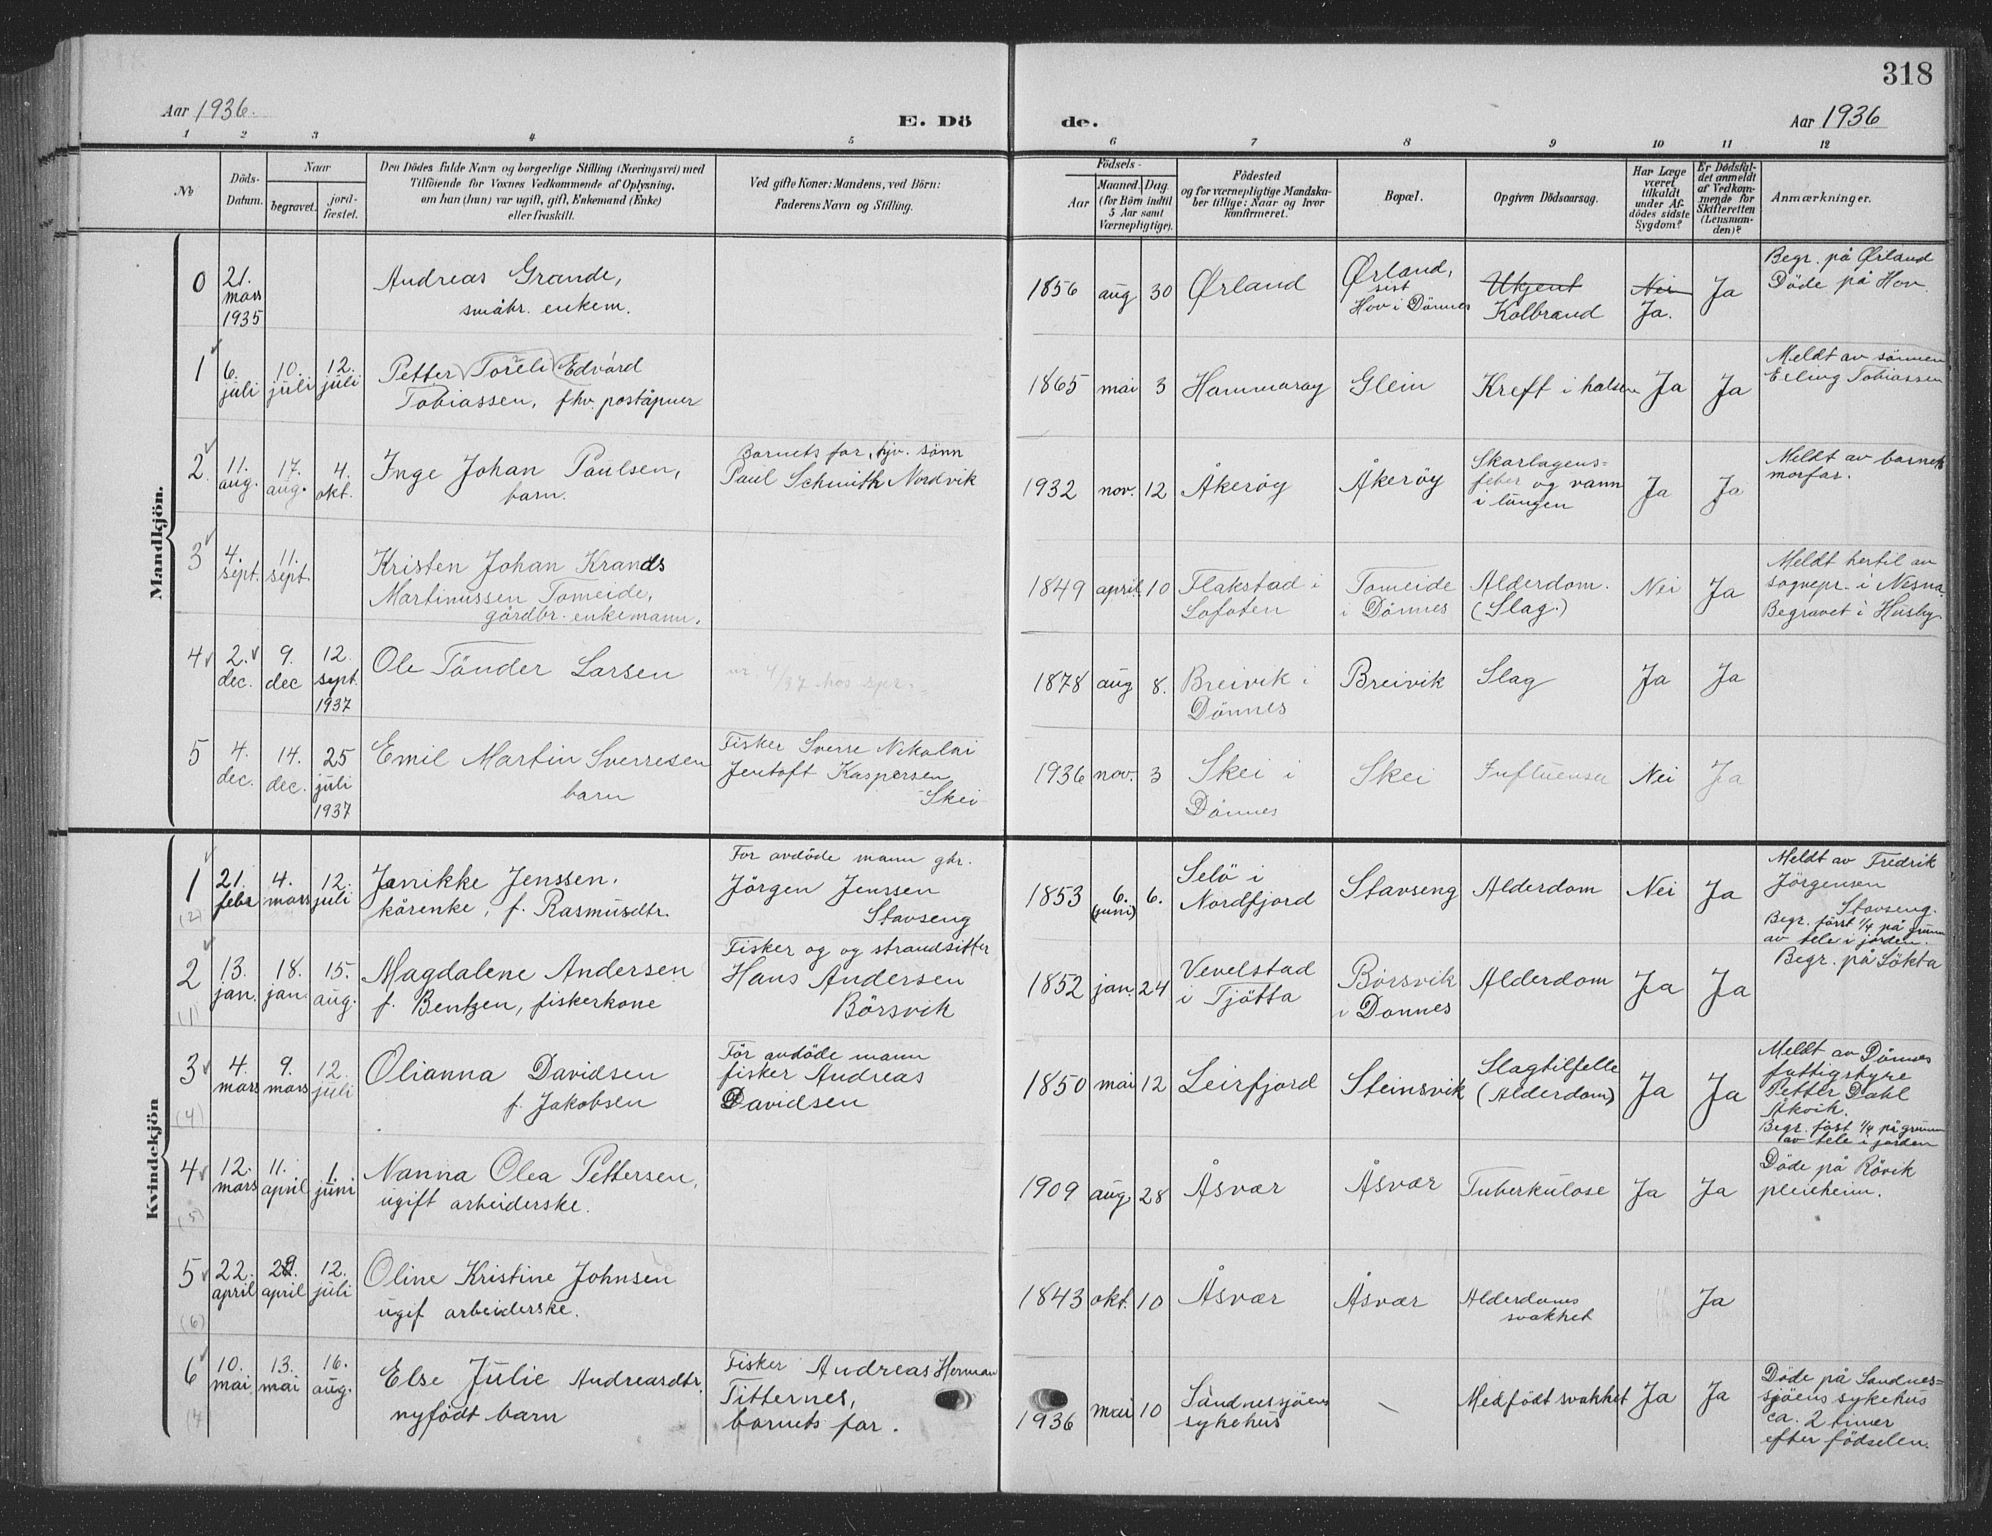 318
Aar 1936.
E. Dö
de.
Aar 1936
1 2 3 4 5 6 7 8 9 10 11 12
No
Döds-
Datum.
Naar
begravet.
jord-
fæstet.
Den Dödes fulde Navn og borgerlige Stilling (Næringsvei) med
Tilföiende for Voxnes Vedkommende af Oplysning,
om han (hun) var ugift, gift, Enkemand (Enke)
eller fraskilt.
Ved gifte Koner: Mandens, ved Börn:
Faderens Navn og Stilling.
Födsels-
Aar
Maaned. Dag.
(for Börn indtil
5 Aar samt
Værnepligtige).
Födested
og for værnepligtige Mandska-
ber tillige: Naar og hvor
konfirmeret.
Bopæl.
Opgiven Dödsaarsag.
Har Læge
været
tilkaldt
under Af-
dödes sidste
Sygdom?
Er Dødsfal-
det anmeldt
af Vedkom-
mende for
Skifteretten
(Lensman-
den)?
Anmærkninger.
Mandkjön.
0
21.
mars
1935
Andreas Grande,
småbr. enkem.
1856 aug 30
Ørland
Ørland,
sist
Hov i Dönnes
Ukjent
Kolbrand
Nei
Ja.
Ja
Begr. på Ørland
Döde på Hov.
1
6.
juli
10.
juli
12.
juli
Petter (Toreli) Edvard
Tobiassen, fhv. poståpner
1865 mai 3
Hammarøy
Glein
Kreft i halsen
Ja
Ja
Meldt av sönnen
Erling Tobiassen
2
11.
aug.
17.
aug.
4.
okt.
Inge Johan Paulsen,
barn.
Barnets far, hjv. sönn
Paul Schmith Nordvik
1932 nov. 12
Åkerøy
Åkerøy
Skarlagens-
feber og vann
i lungen
Ja
Ja
Meldt av barnets
morfar.
3
4.
sept.
11.
sept.
Kristen Johan Krands
Martinussen Tomeide,
gårdbr. enkemann.
1849 april 10
Flakstad i
Lofoten
Tomeide
i Dönnes
Alderdom.
(Slag.)
Nei
Ja
Meldt hertil av
sognepr. i Nesna.
Begravet i Husby
4
2.
dec.
9.
dec
12.
sept.
1937
Ole Tönder Larsen
nr. 4/37 hos spr.
1878 aug 8.
Breivik i
Dönnes
Breivik
Slag
Ja
Ja
5
4.
dec.
14.
dec.
25
juli
1937
Emil Martin Sverresen
barn
Fisker Sverre Nikolai
Jentoft Kaspersen
Skei
1936 nov. 3
Skei i
Dönnes
Skei
Influensa
Nei
Ja
Kvindekjön
1
(2)
21.
febr
4.
mars
12.
juli
Janikke Jenssen.
kårenke, f. Rasmusdtr.
For avdöde mann gbr.
Jörgen Jenssen
Stavseng
1853 6.
(juni) 6.
Selö i
Nordfjord
Stavseng
Alderdom
Nei
Ja
Meldt av Fredrik
Jörgensen
Stavseng.
Begr. först 1/4 på grunn
av tele i jorden.
2
(1)
13.
jan.
18.
jan.
15.
aug.
Magdalene Andersen
f. Bentzen, fiskerkone
Fisker og og strandsitter
Hans Andersen
Börsvik
1852 jan. 24
Vevelstad
i Tjötta
Börsvik
i Dönnes
Alderdom
Ja
Ja
Begr. på Lökta
3
(4)
4.
mars
9.
mars
12.
juli
Olianna Davidsen
f. Jakobsen
För avdöde mann
fisker Andreas
Davidsen
1850 mai 12
Leirfjord
Steinsvik
Slagtilfelle
(Alderdom)
Ja
Ja
Meldt av Dönnes
fattigstyre
Petter Dahl
Åkvik.
Begr. föst 1/4 på grunn
av tele i jorden
4
(5)
12.
mars
11.
april
1.
juni
Nanna Olea Pettersen,
ugift arbeiderske.
1909 aug 28
Åsvær
Åsvær
Tuberkulose
Ja
Ja
Döde på Rövik
pleieheim.
5
(6)
22.
april
29.
april
12.
juli
Oline Kristine Johnsen
ugif arbeiderske.
1843 okt. 10
Åsvær
Åsvær
Alderdoms
svakhet
Ja
6
10.
mai
13.
mai
16.
aug.
Else Julie Andreasdtr.
nyfödt barn
Fisker Andreas Herman
Titternes,
barnets far.
1936 mai 10
Sandnessjöens
sykehus
Medfödt svakhet
Ja
Ja
Döde på Sandnes-
sjöens sykehus
ca. 2 timer
efter födselen.